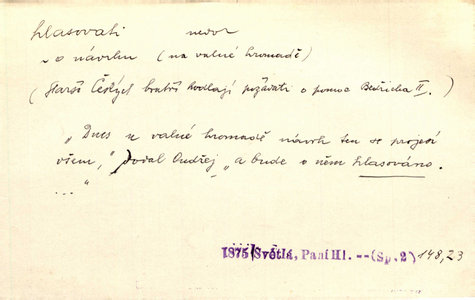 hlasovati nedok
~ o návrhu (na valné hromadě)
(Starší Českých bratří hodlají požádati o pomoc Bedřicha II.)
„Dnes u valné hromadě návrh ten se projeví
všem,“ dodal Ondřej „a bude o něm hlasováno.
..."
1875 Světlá, Paní Hl. --(Sp.2) 148,23